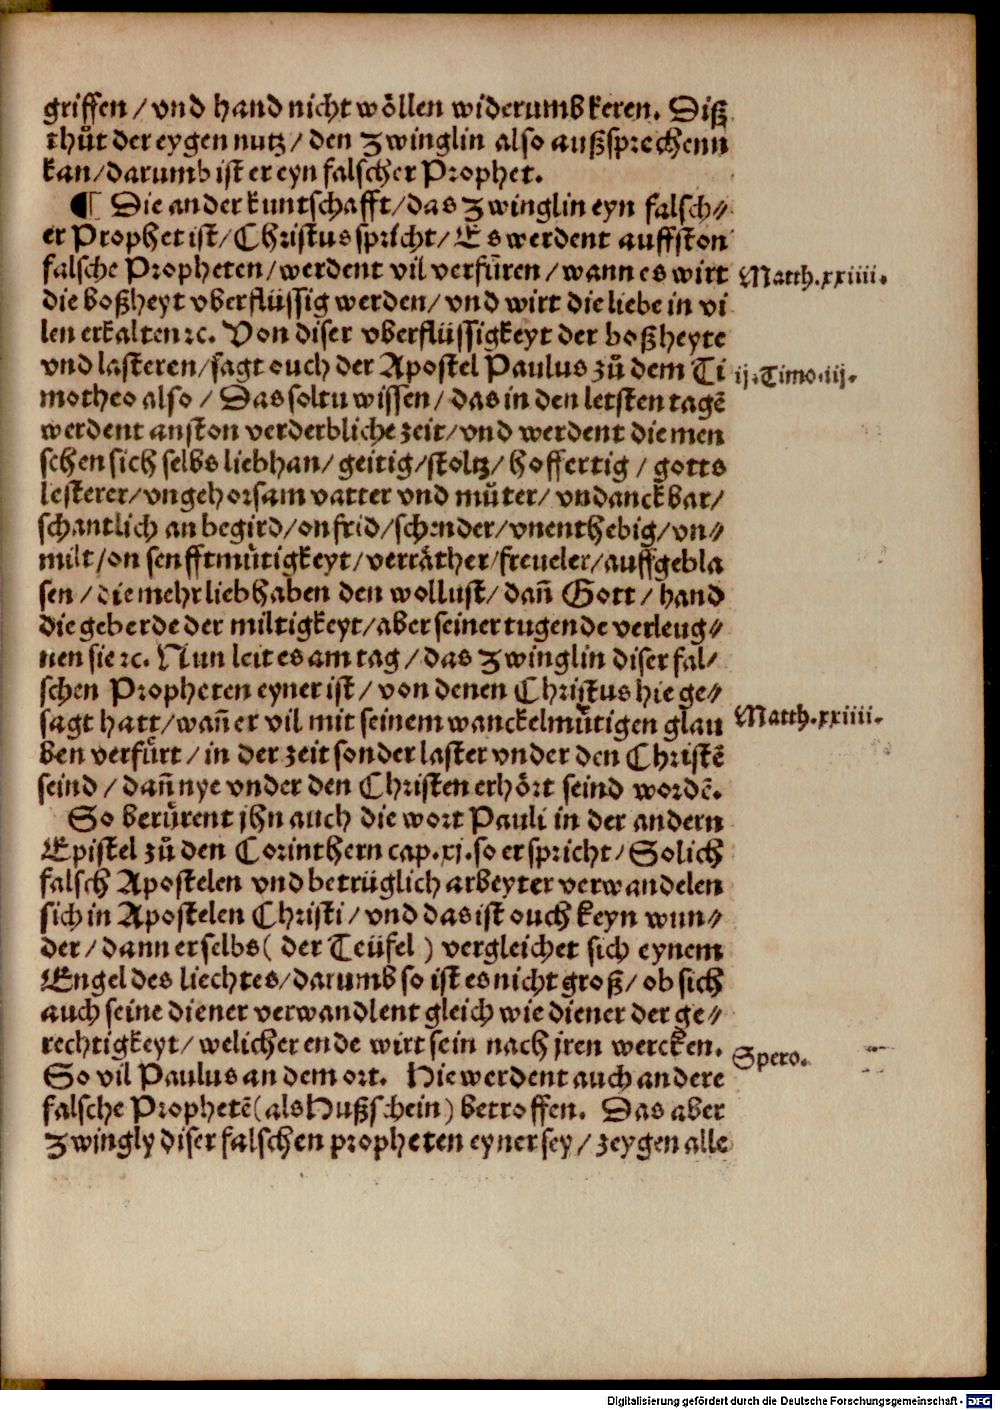 griffen / vnd hand nicht wöllen widerumb keren. Diß
thůt der eygen nutz / den Zwinglin also außsprechenn
kan / darumb ist er eyn falscher Prophet.
¶ Die ander kuntschafft / das Zwinglin eyn falsch⸗
er Prophet ist / Christus spricht / Es werdent auffston
falsche Propheten / werdent vil verfüren / wann es wirt
Matth.xxiiii.
die boßheyt vberflüssig werden / vnd wirt die liebe in vi
len erkalten ꝛc. Von diser vberflüssigkeyt der boßheyte
vnd lasteren / sagt ouch der Apostel Paulus zů dem Ti
ij.Timo.iij.
motheo also / Das soltu wissen / das in den letsten tagẽ
werdent anston verderbliche zeit / vnd werdent die men
schen sich selbs lieb han / geitig / stoltz / hoffertig / gotts
lesterer / vngehorsam vatter vnd můter / vndanckbar /
schantlich an begird / on frid / schender / vnenthebig / vn⸗
milt / on senfftmütigkeyt / verräther / freueler / auffgebla
sen / die mehr lieb haben den wollust / dañ Gott / hand
die geberde der miltigkeyt / aber seiner tugende verleug⸗
nen sie ꝛc. Nun leit es am tag / das Zwinglin diser fal⸗
schen Propheten eyner ist / von denen Christus hie ge⸗
sagt hatt / wañ er vil mit seinem wanckelmůtigen glau
Matth.xxiiii.
ben verfürt / in der zeit sonder laster vnder den Christẽ
seind / dañ nye vnder den Christen erhört seind wordẽ.
So berürent jhn auch die wort Pauli in der andern
Epistel zů den Corinthern cap.xj. so er spricht / Solich
falsch Apostelen vnd betrüglich arbeyter verwandelen
sich in Apostelen Christi / vnd das ist ouch keyn wun⸗
der / dann er selbs ( der Teüfel ) vergleichet sich eynem
Engel des liechtes / darumb so ist es nicht groß / ob sich
auch seine diener verwandlent gleich wie diener der ge⸗
rechtigkeyt / welicher ende wirt sein nach jren wercken.
Spero.
So vil Paulus an dem ort. Hie werdent auch andere
falsche Prophetẽ ( als Hußschein ) betroffen. Das aber
Zwingly diser falschen propheten eyner sey / zeygen alle
Digitalisierung gefördert durch die Deutsche Forschungsgemeinschaft - DFG